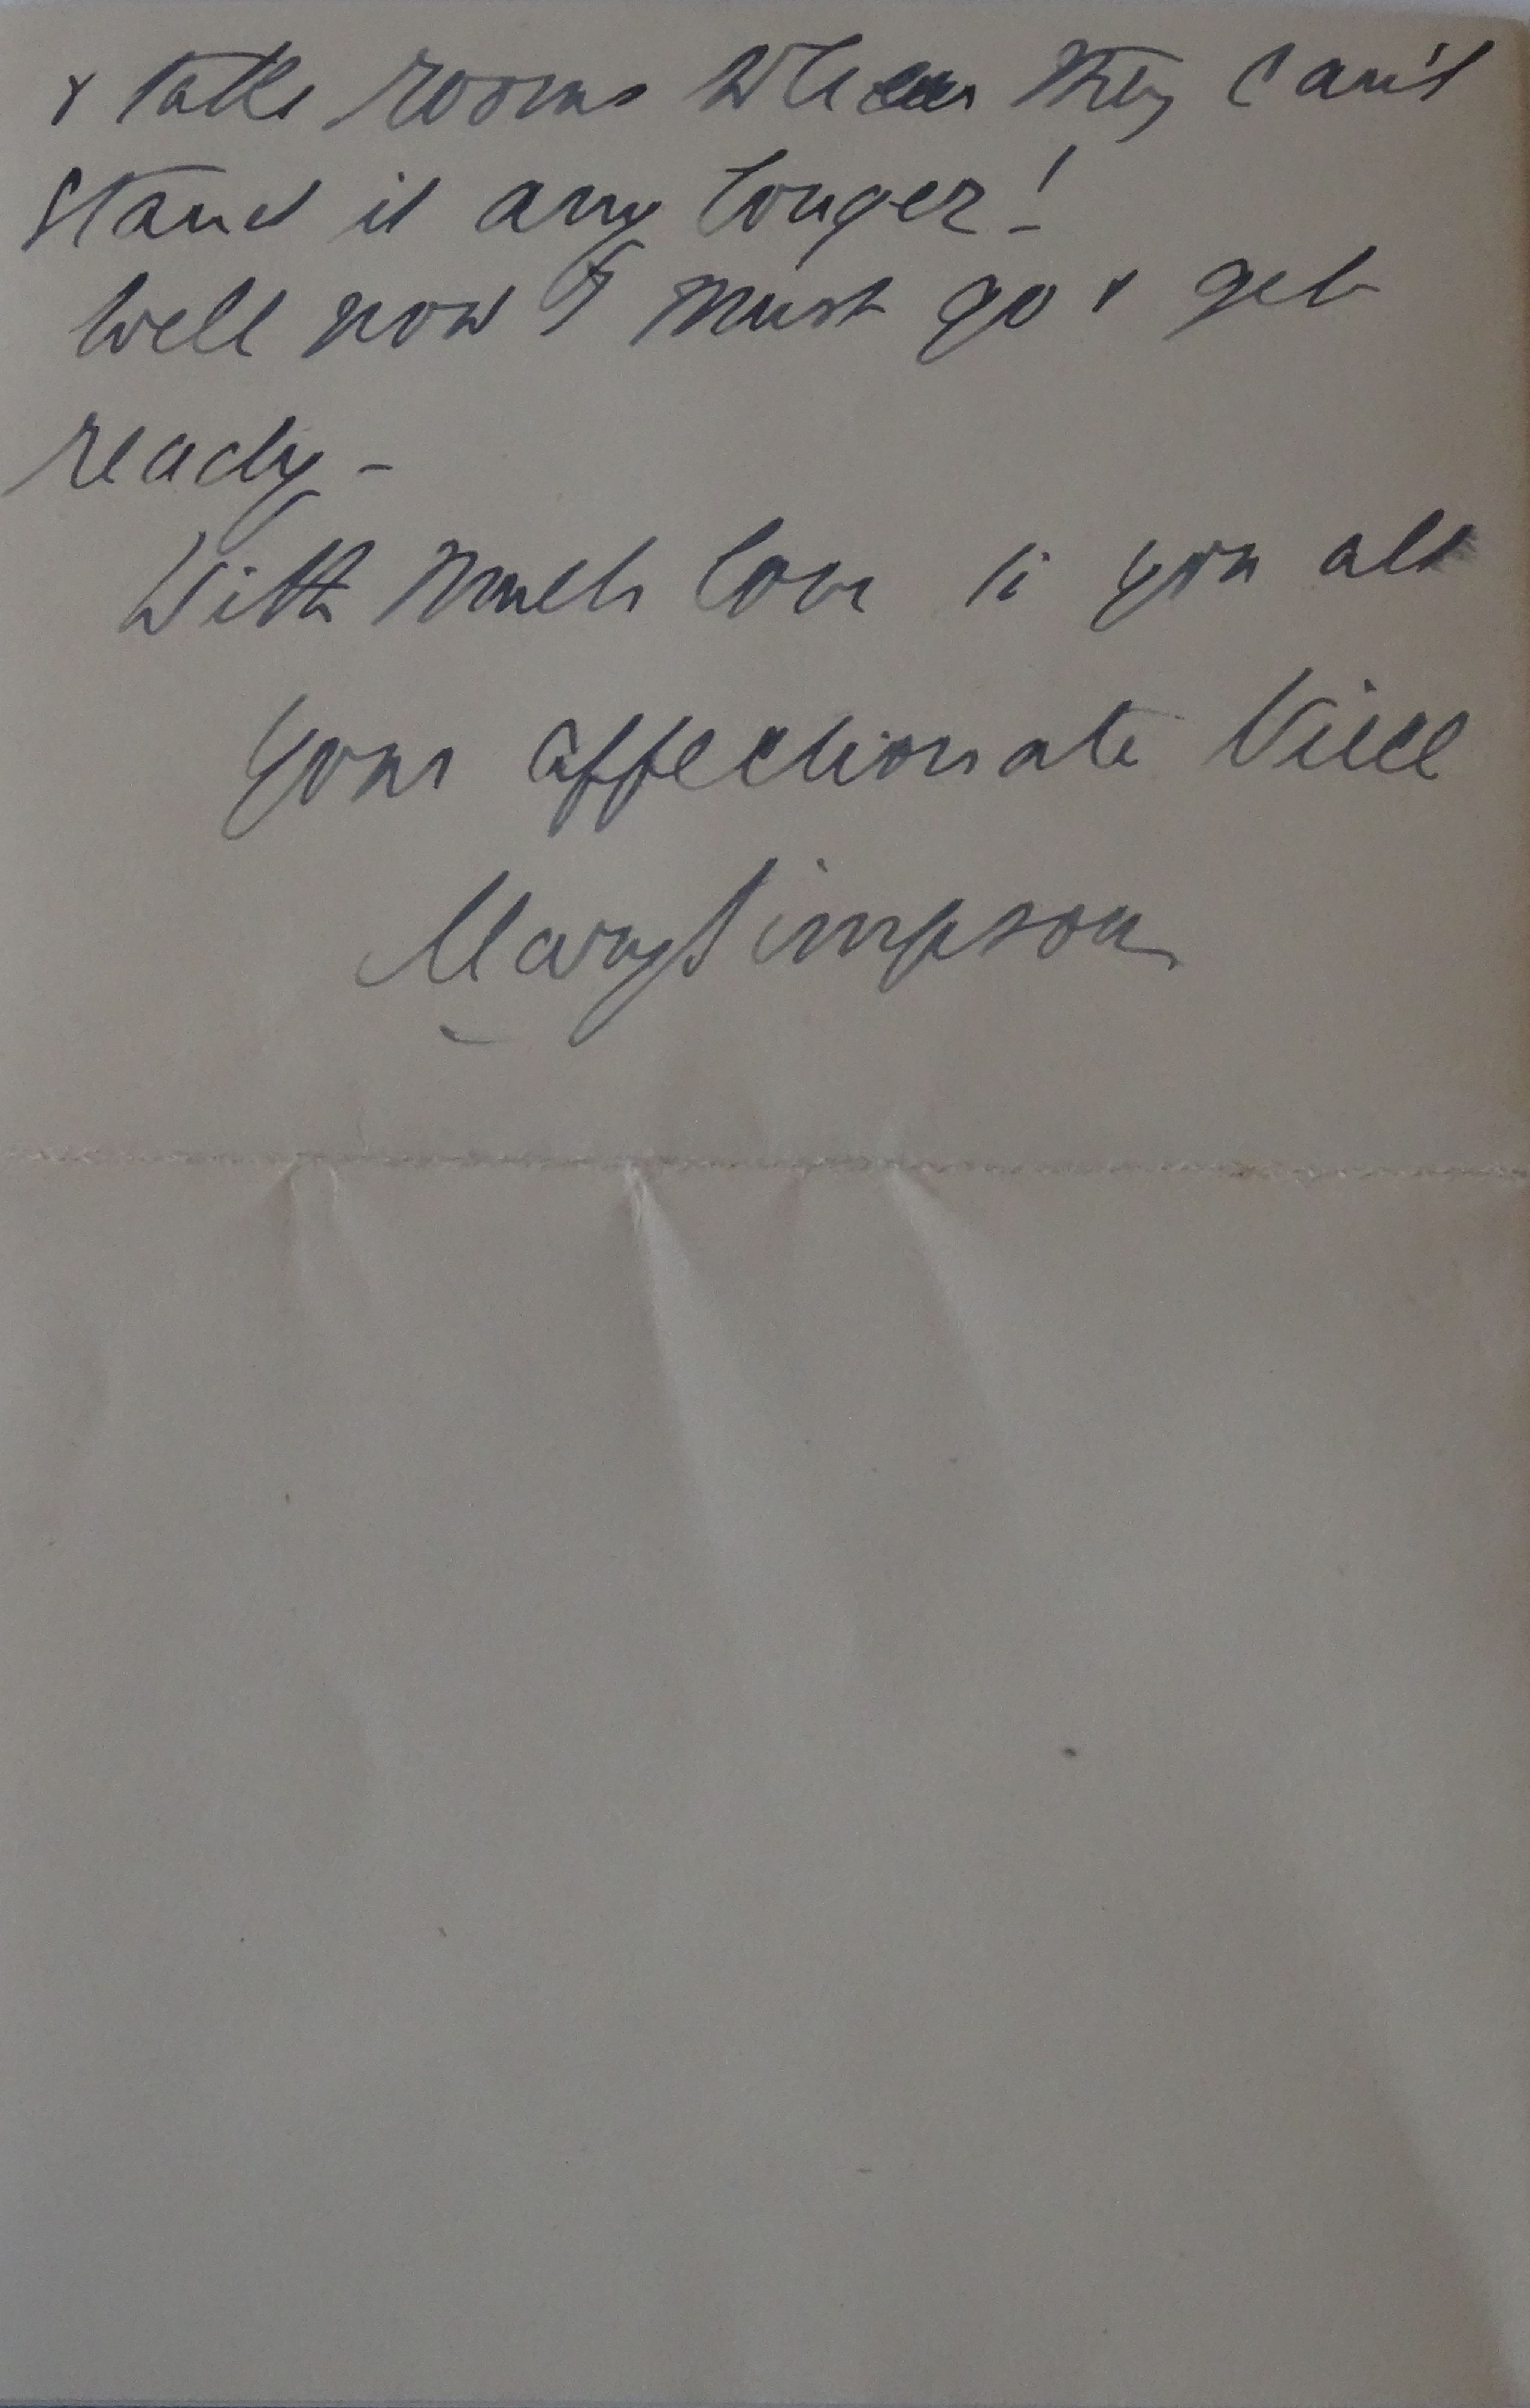 & take rooms when they can't
stand it any longer!
Well now I must go & get
ready -
With much love to you all
Your affectionate Niece
Mary Simpson